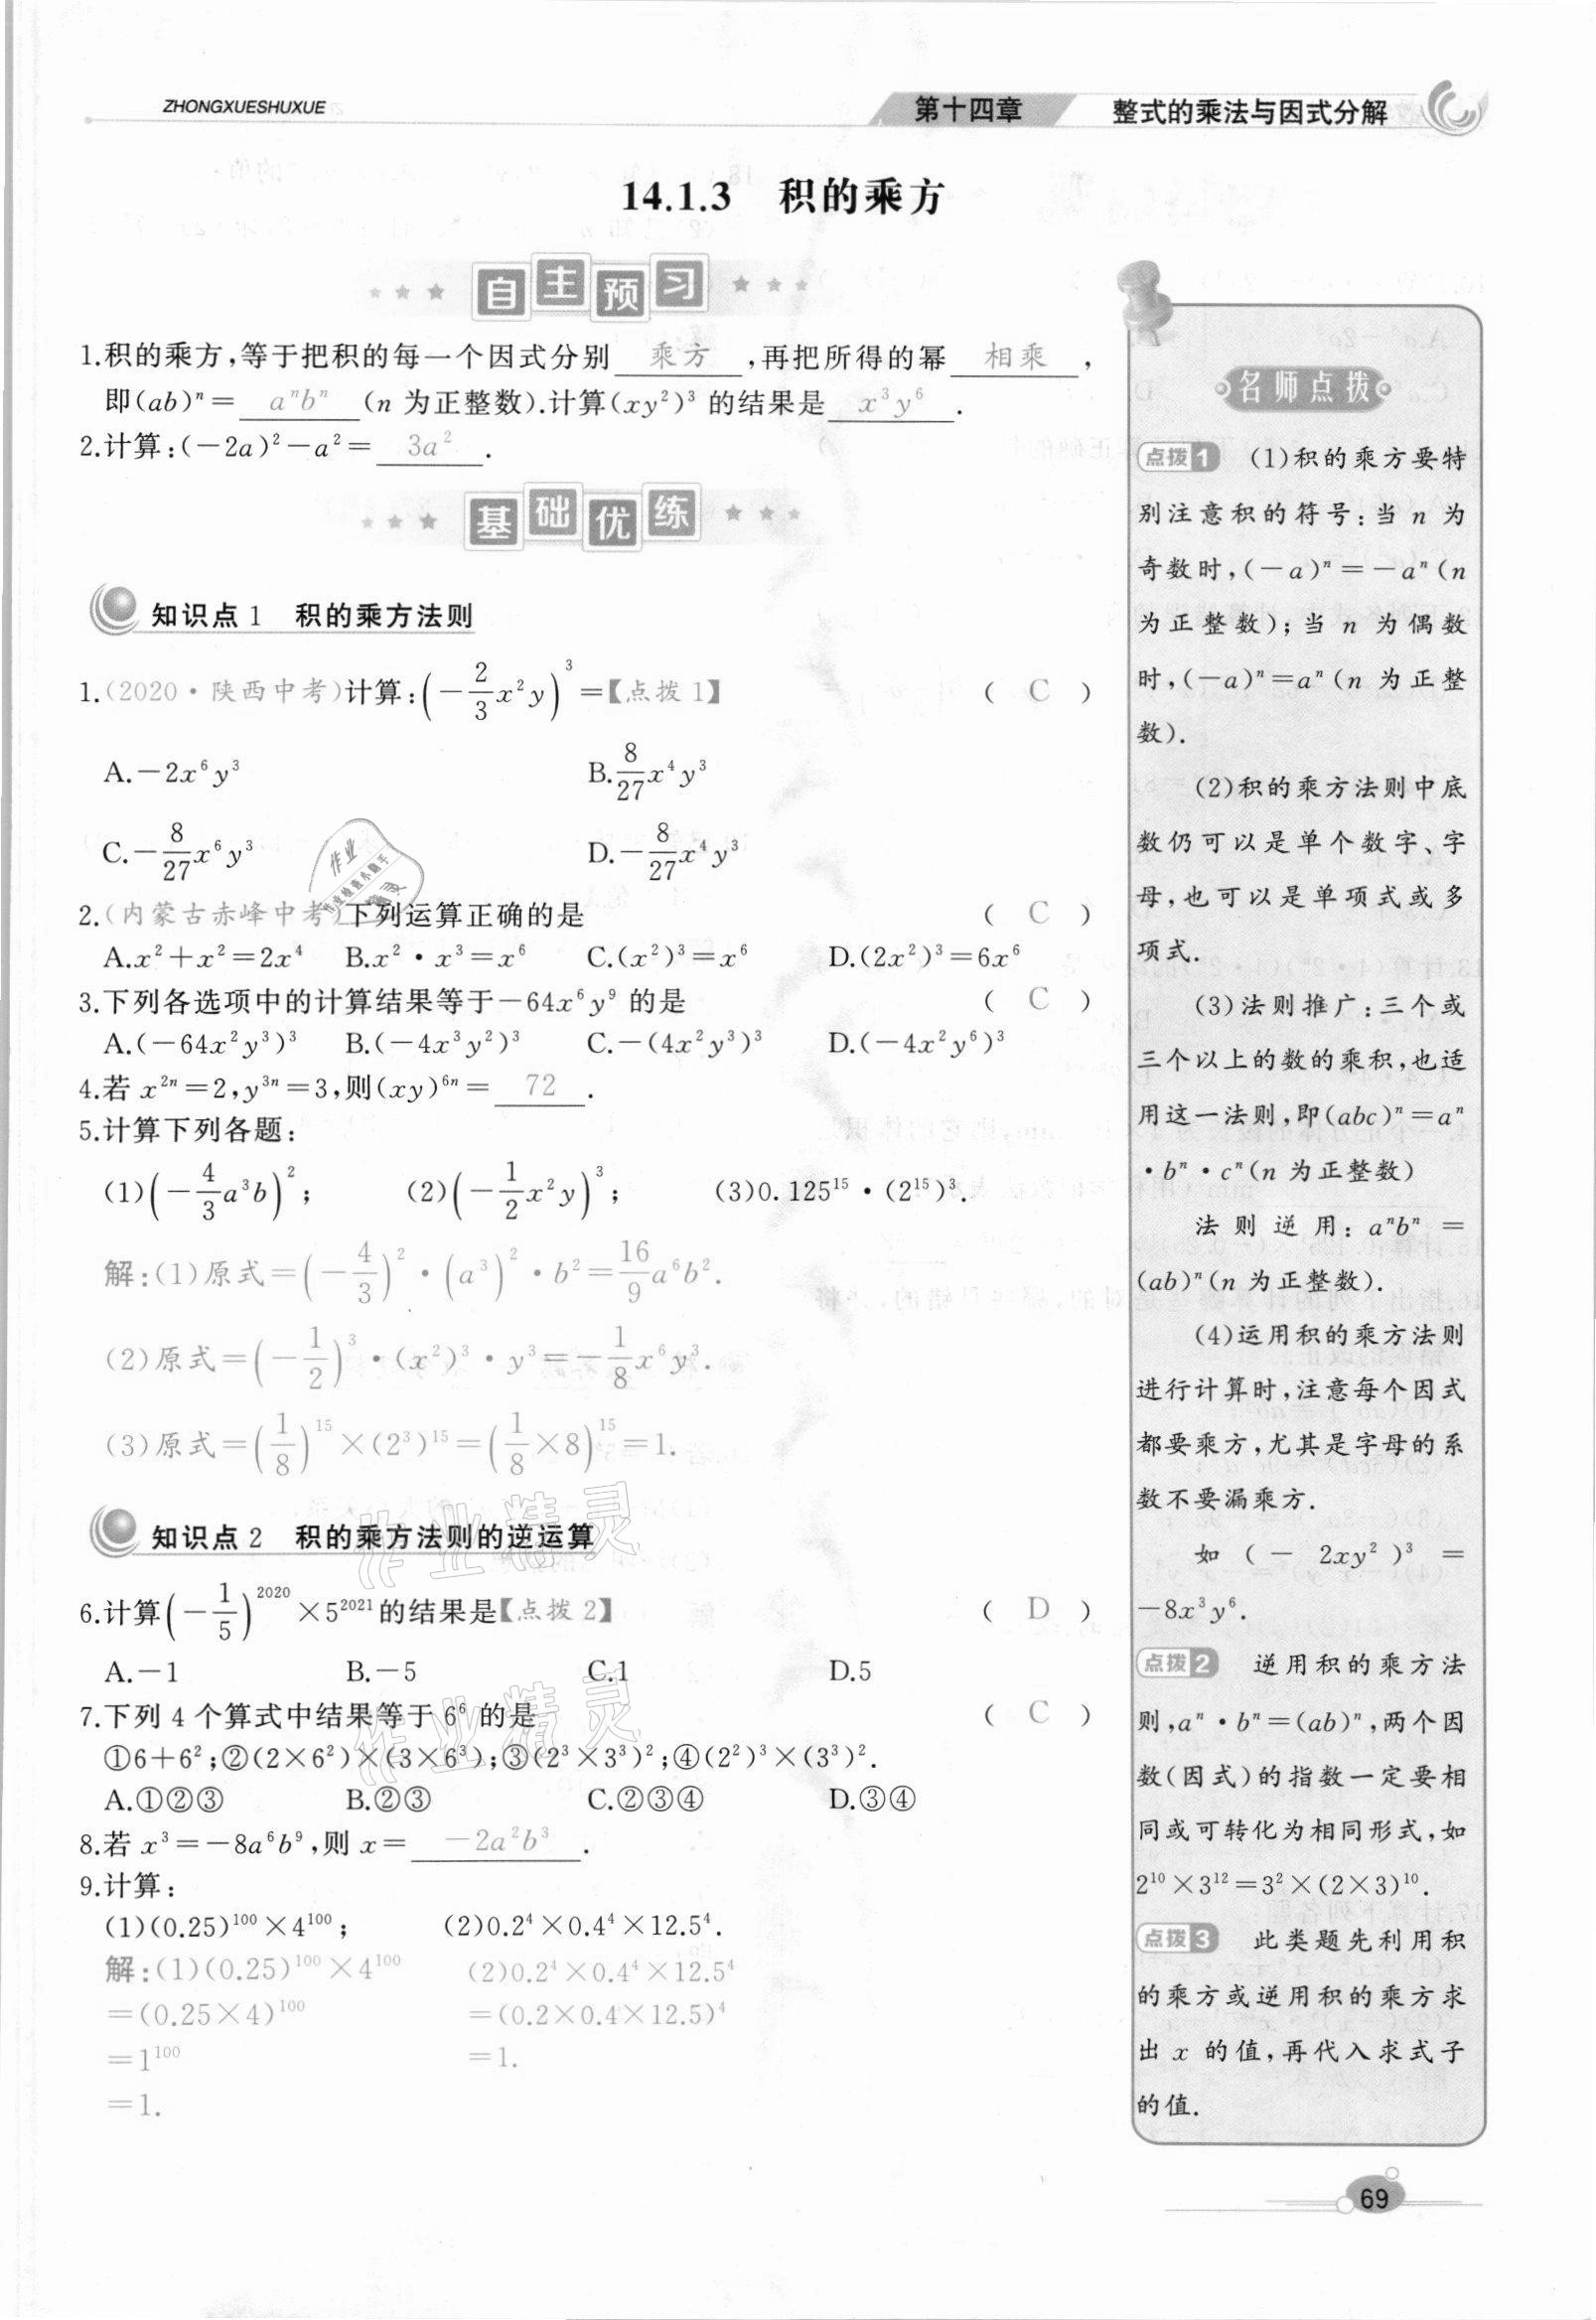 ZHONGXUESHUXUE
第十四章 整式的乘法与因式分解
14.1.3 积的乘方
自主预习
1.积的乘方,等于把积的每一个因式分别 乘方 ,再把所得的幂 相乘 ,
即(ab)ⁿ= aⁿbⁿ (n 为正整数).计算(xy²)³ 的结果是 x³y⁶ .
2.计算:(-2a)²-a²= 3a² .
基础优练
知识点 1 积的乘方法则
1.(2020·陕西中考)计算:(-2/3x²y)³=【点拨 1】 ( C )
A.-2x⁶y³ B.8/27x⁴y³
C.-8/27x⁶y³ D.-8/27x⁴y³
2.(内蒙古赤峰中考)下列运算正确的是 ( C )
A.x²+x²=2x⁴ B.x²·x³=x⁶ C.(x²)³=x⁶ D.(2x²)³=6x⁶
3.下列各选项中的计算结果等于-64x⁶y⁹ 的是 ( C )
A.(-64x²y³)³ B.(-4x³y²)³ C.-(4x²y³)³ D.(-4x²y⁶)³
4.若 x²ⁿ=2,y³ⁿ=3,则(xy)⁶ⁿ= 72 .
5.计算下列各题:
(1)(-4/3a³b)²; (2)(-1/2x²y)³; (3)0.125¹⁵·(2¹⁵)³.
解:(1)原式=(-4/3)²·(a³)²·b²=16/9a⁶b².
(2)原式=(-1/2)³·(x²)³·y³=-1/8x⁶y³.
(3)原式=(1/8)¹⁵×(2³)¹⁵=(1/8×8)¹⁵=1.
知识点 2 积的乘方法则的逆运算
6.计算(-1/5)²⁰²⁰×5²⁰²¹的结果是【点拨 2】 ( D )
A.-1 B.-5 C.1 D.5
7.下列 4 个算式中结果等于 6⁶ 的是 ( C )
①6+6²;②(2×6²)×(3×6³);③(2³×3³)²;④(2²)³×(3³)².
A.①②③ B.②③ C.②③④ D.③④
8.若 x³=-8a⁶b⁹,则 x= -2a²b³ .
9.计算:
(1)(0.25)¹⁰⁰×4¹⁰⁰; (2)0.2⁴×0.4⁴×12.5⁴.
解:(1)(0.25)¹⁰⁰×4¹⁰⁰ (2)0.2⁴×0.4⁴×12.5⁴
=(0.25×4)¹⁰⁰ =(0.2×0.4×12.5)⁴
=1¹⁰⁰ =1.
=1.
名师点拨
点拨1 (1)积的乘方要特
别注意积的符号:当 n 为
奇数时,(-a)ⁿ=-aⁿ(n
为正整数);当 n 为偶数
时,(-a)ⁿ=aⁿ(n 为正整
数).
(2)积的乘方法则中底
数仍可以是单个数字、字
母,也可以是单项式或多
项式.
(3)法则推广:三个或
三个以上的数的乘积,也适
用这一法则,即(abc)ⁿ=aⁿ
·bⁿ·cⁿ(n 为正整数)
法则逆用:aⁿbⁿ=
(ab)ⁿ(n 为正整数).
(4)运用积的乘方法则
进行计算时,注意每个因式
都要乘方,尤其是字母的系
数不要漏乘方.
如(-2xy²)³=
-8x³y⁶.
点拨2 逆用积的乘方法
则,aⁿ·bⁿ=(ab)ⁿ,两个因
数(因式)的指数一定要相
同或可转化为相同形式,如
2¹⁰×3¹²=3²×(2×3)¹⁰.
点拨3 此类题先利用积
的乘方或逆用积的乘方求
出 x 的值,再代入求式子
的值.
69
作业精灵
作业精灵